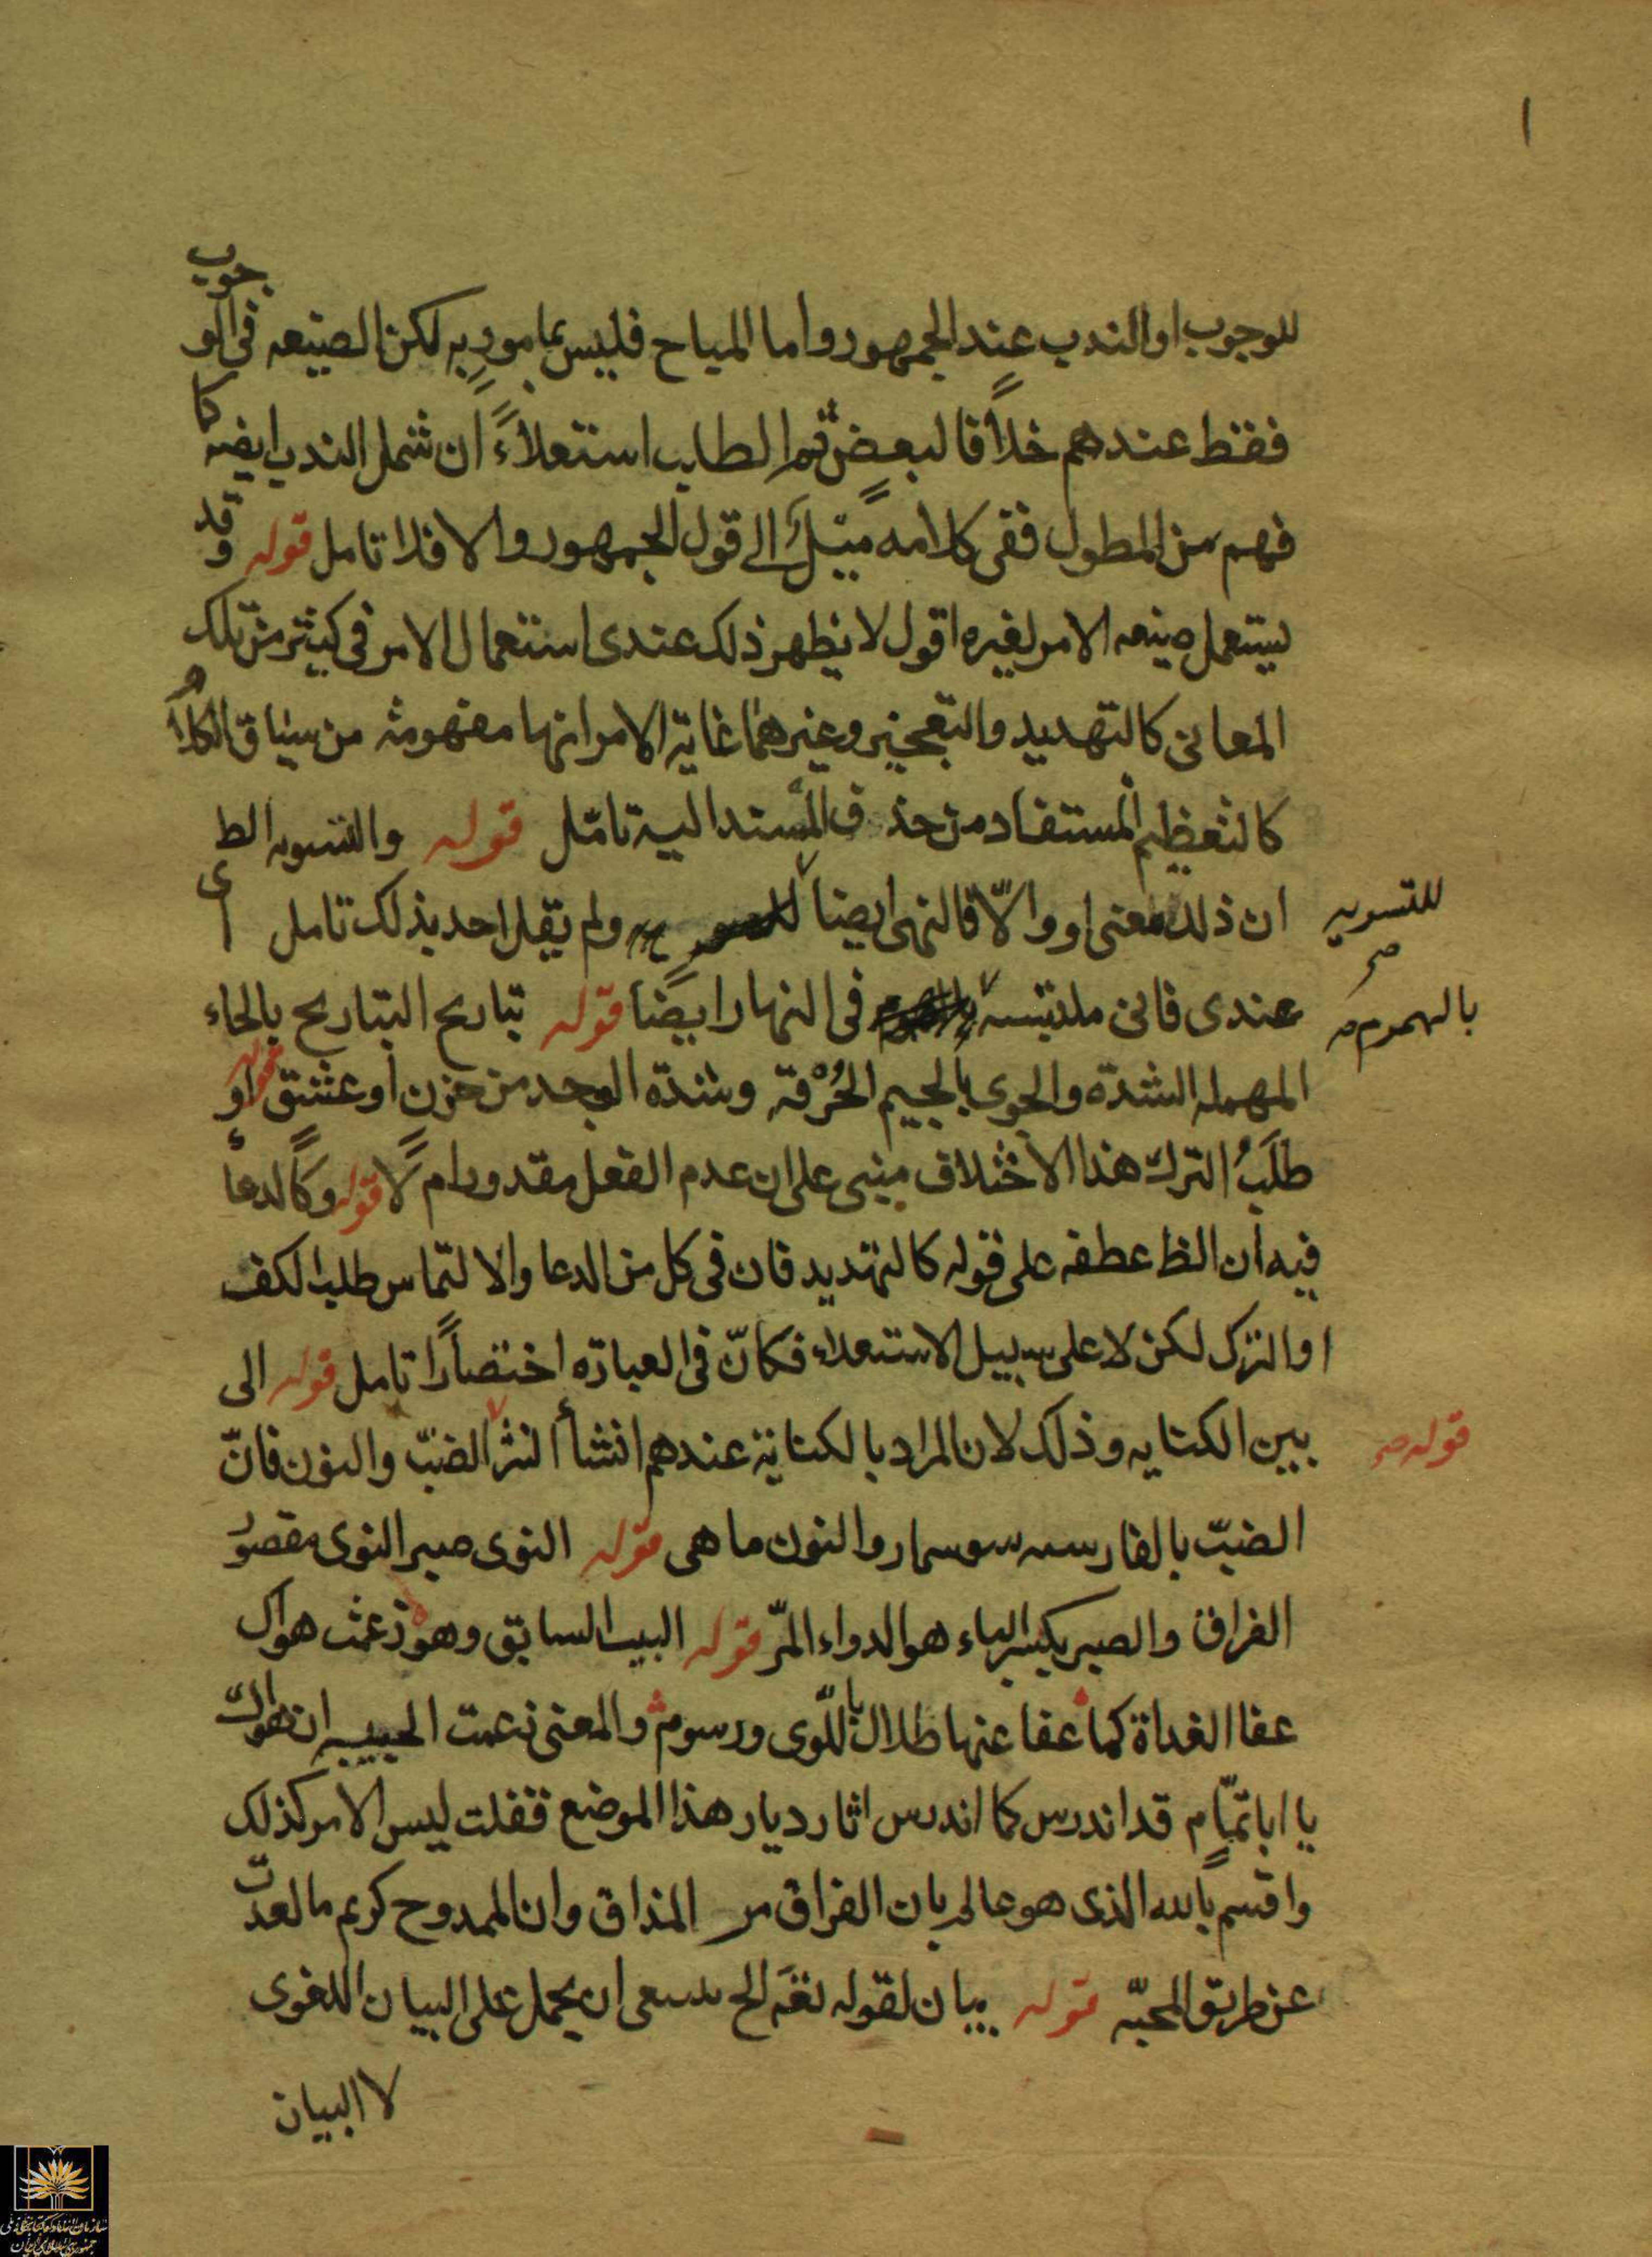 للوجوب او الندب عند الجمهور واما المباح فليس بمامور به لكن الصيغه فى الوجوب
فقط عندهم خلافا لبعض ثم الطلب استعلاءً ان شمل الندب ايضه كا
فهم من المطول ففى كلامه ميل الى قول الجمهور والا فلا تامل قوله وقد
يستعمل صيغه الامر لغيره اقول لا يظهر ذلك عندى استعمال الامر فى كثير من تلك
المعانى كالتهديد والتعجيز وغيرهما غاية الامر انها مفهومة من سياق الكلام
كالتعظيم المستفاد من حذف المسند اليه تامّل قوله والتسويه الظ
ان ذلك معنى او والّا فالنهى ايضا ولم يقل احد بذلك تامل اى
للتسويه صح
عندى فانى ملتبسه فى النهار ايضا قوله تباريح التباريح بالحاء
بالهموم صح
المهمله الشدة والجوى بالجيم الحُرْقة وشدة الوجد من حزن او عشق قوله او
طلَبُ الترك هذا الاختلاف مبنى على ان عدم الفعل مقدور ام لا قوله وكالدعأ
فيه ان الظ عطفه على قوله كالتهديد فان فى كل من الدعا والالتماس طلب الكف
او الترك لكن لا على سبيل الاستعلاء فكانّ فى العبارة اختصارًا تامل قوله الى
بين الكنايه وذلك لان المراد بالكناية عندهم انشأ النثر الضبّ والنون فانّ
قوله صح
الضبّ بالفارسه سوسمار والنون ماهى قوله النوى صبر النوى مقصور
الفراق والصبر بكسر الباء هو الدواء المرّ قوله البيت السابق وهو زعمت هواك
عفا الغداة كما عفا عنها طلال باللّوى ورسوم والمعنى زعمت الحبيبه ان هواك
يا ابا تمّام قد اندرس كما اندرس اثار ديار هذا الموضع فقلت ليس الامر كذلك
واقسم بالله الذى هو عالم بان الفراق مر المذاق وان الممدوح كريم ما لعدت
عن طريق المحبّه قوله بيان لقوله نغم الخ ينبغى ان يحمل على البيان اللغوى
لا البيان